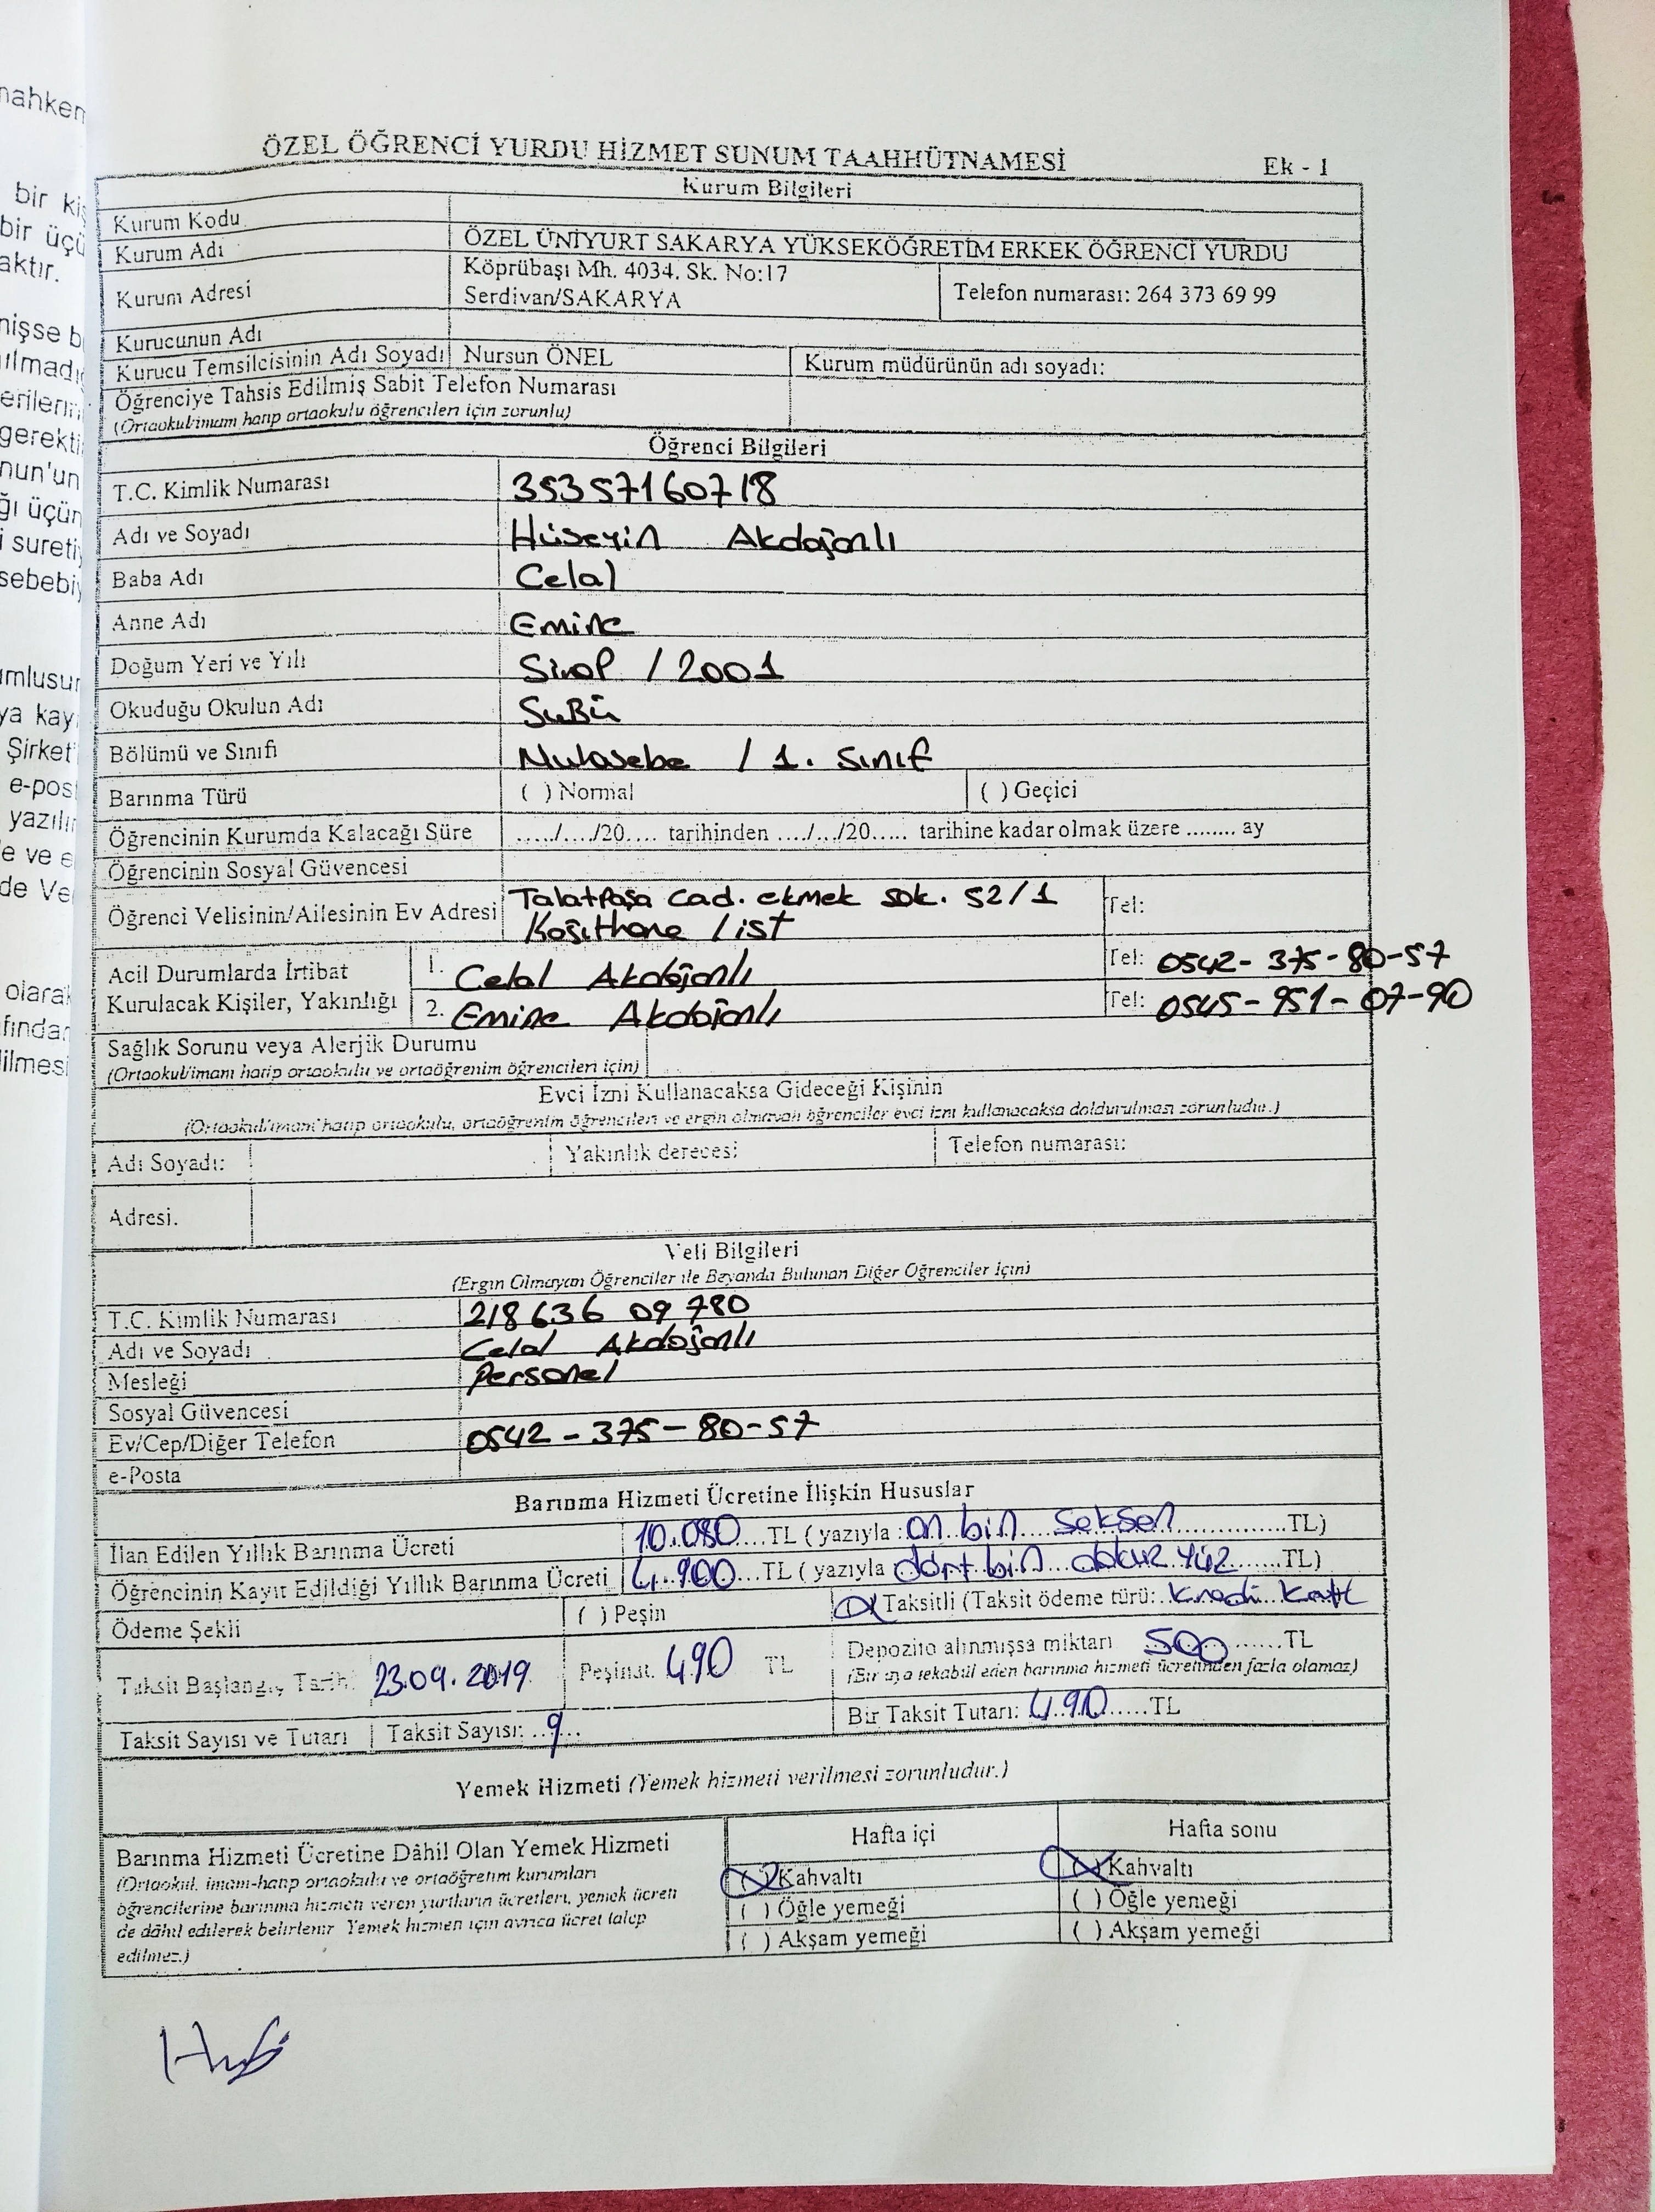 ÖZEL ÖĞRENCİ YURDU HİZMET SUNUM TAAHHÜTNAMESİ
Ek - 1
Kurum Bilgileri
Kurum Kodu
Kurum Adı ÖZEL ÜNİYURT SAKARYA YÜKSEKÖĞRETİM ERKEK ÖĞRENCİ YURDU
Kurum Adresi Köprübaşı Mh. 4034. Sk. No:17
Serdivan/SAKARYA Telefon numarası: 264 373 69 99
Kurucunun Adı
Kurucu Temsilcisinin Adı Soyadı Nursun ÖNEL Kurum müdürünün adı soyadı:
Öğrenciye Tahsis Edilmiş Sabit Telefon Numarası
(Ortaokul/imam hatip ortaokulu öğrencileri için zorunlu)
Öğrenci Bilgileri
T.C. Kimlik Numarası 35357160718
Adı ve Soyadı Hüseyin Akdoğanlı
Baba Adı Celal
Anne Adı Emine
Doğum Yeri ve Yılı Sinop / 2001
Okuduğu Okulun Adı SUBÜ
Bölümü ve Sınıfı Muhasebe / 1. Sınıf
Barınma Türü ( ) Normal ( ) Geçici
Öğrencinin Kurumda Kalacağı Süre ...../..../20.... tarihinden ..../.../20..... tarihine kadar olmak üzere ........ ay
Öğrencinin Sosyal Güvencesi
Öğrenci Velisinin/Ailesinin Ev Adresi Talatpaşa cad. ekmek sok. 52/1 Tel:
Kağıthane / ist
Acil Durumlarda İrtibat 1. Celal Akdoğanlı Tel: 0542-375-80-57
Kurulacak Kişiler, Yakınlığı 2. Emine Akdoğanlı Tel: 0545-951-07-90
Sağlık Sorunu veya Alerjik Durumu
(Ortaokul/imam hatip ortaokulu ve ortaöğrenim öğrencileri için)
Evci İzni Kullanacaksa Gideceği Kişinin
(Ortaokul/imam hatip ortaokulu, ortaöğrenim öğrencileri ve ergin olmayan öğrenciler evci izni kullanacaksa doldurulması zorunludur.)
Adı Soyadı: Yakınlık derecesi: Telefon numarası:
Adresi.
Veli Bilgileri
(Ergin Olmayan Öğrenciler ile Beyanda Bulunan Diğer Öğrenciler İçin)
T.C. Kimlik Numarası 218636 09 780
Adı ve Soyadı Celal Akdoğanlı
Mesleği Personel
Sosyal Güvencesi
Ev/Cep/Diğer Telefon 0542-375-80-57
e-Posta
Barınma Hizmeti Ücretine İlişkin Hususlar
İlan Edilen Yıllık Barınma Ücreti 10.080....TL ( yazıyla : on bin seksen ...............TL)
Öğrencinin Kayıt Edildiği Yıllık Barınma Ücreti 4.900...TL ( yazıyla dört bin dokuz yüz .......TL)
Ödeme Şekli ( ) Peşin (X) Taksitli (Taksit ödeme türü: Kredi Kartı
Taksit Başlangıç Tarihi 23.09.2019 Peşinat: 490 TL Depozito alınmışsa miktarı 500......TL
(Bir aya tekabül eden barınma hizmeti ücretinden fazla olamaz)
Taksit Sayısı ve Tutarı Taksit Sayısı: ..9... Bir Taksit Tutarı: 490......TL
Yemek Hizmeti (Yemek hizmeti verilmesi zorunludur.)
Barınma Hizmeti Ücretine Dâhil Olan Yemek Hizmeti Hafta içi Hafta sonu
(Ortaokul, imam-hatip ortaokulu ve ortaöğretim kurumları (X) Kahvaltı (X) Kahvaltı
öğrencilerine barınma hizmeti veren yurtların ücretleri, yemek ücreti ( ) Öğle yemeği ( ) Öğle yemeği
de dâhil edilerek belirlenir Yemek hizmeti için ayrıca ücret talep ( ) Akşam yemeği ( ) Akşam yemeği
edilmez.)
mahkem
bir kiş
bir üçü
aktır.
erilerin
gerekti
nun'un
ğı üçün
i sureti
sebebiy
umlusur
ya kay
Şirket
e-pos
yazılı
e ve e
de Ve
olarak
fından
ilmesi